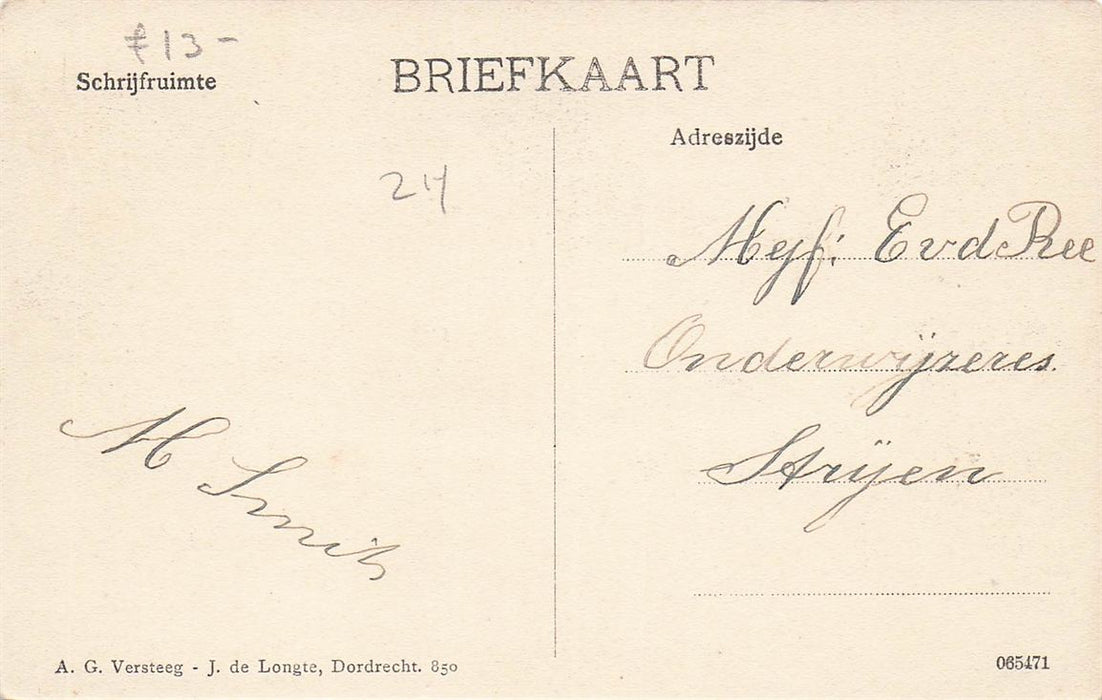 f 13-
Schrijfruimte
BRIEFKAART
Adreszijde
24
Mejf: E v d Ree
Onderwijzeres.
Strijen
M Smit
A. G. Versteeg - J. de Longte, Dordrecht. 850
065471